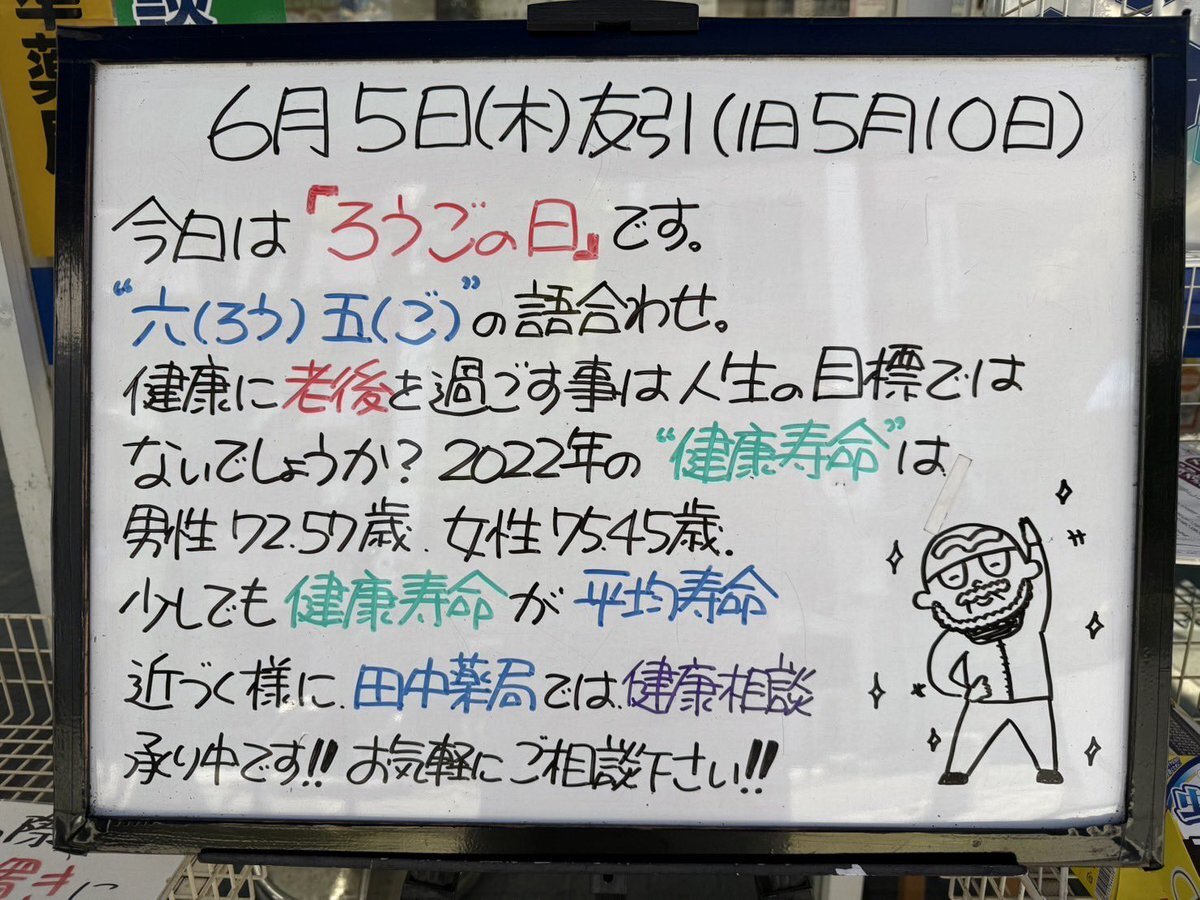 6月5日(木)友引(旧5月10日)
今日は『ろうごの日』です。
“六(ろう)五(ご)”の語合わせ。
健康に老後を過ごす事は人生の目標では
ないでしょうか? 2022年の“健康寿命”は、
男性72.57歳、女性75.45歳.
少しでも健康寿命が平均寿命
近づく様に、田中薬局では、健康相談
承り中です!! お気軽にご相談下さい!!